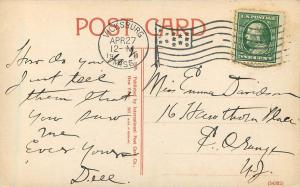 POST CARD
VICKSBURG
APR 27
12-M
MISS.
U.S. POSTAGE
ONE CENT
How do you do
Just tell
them that
you saw
me
Ever Yours
Dell.
Published by International Post Card Co.,
Miss Emma Davidson
16 Hawthorn Place
E. Orange
N.J.